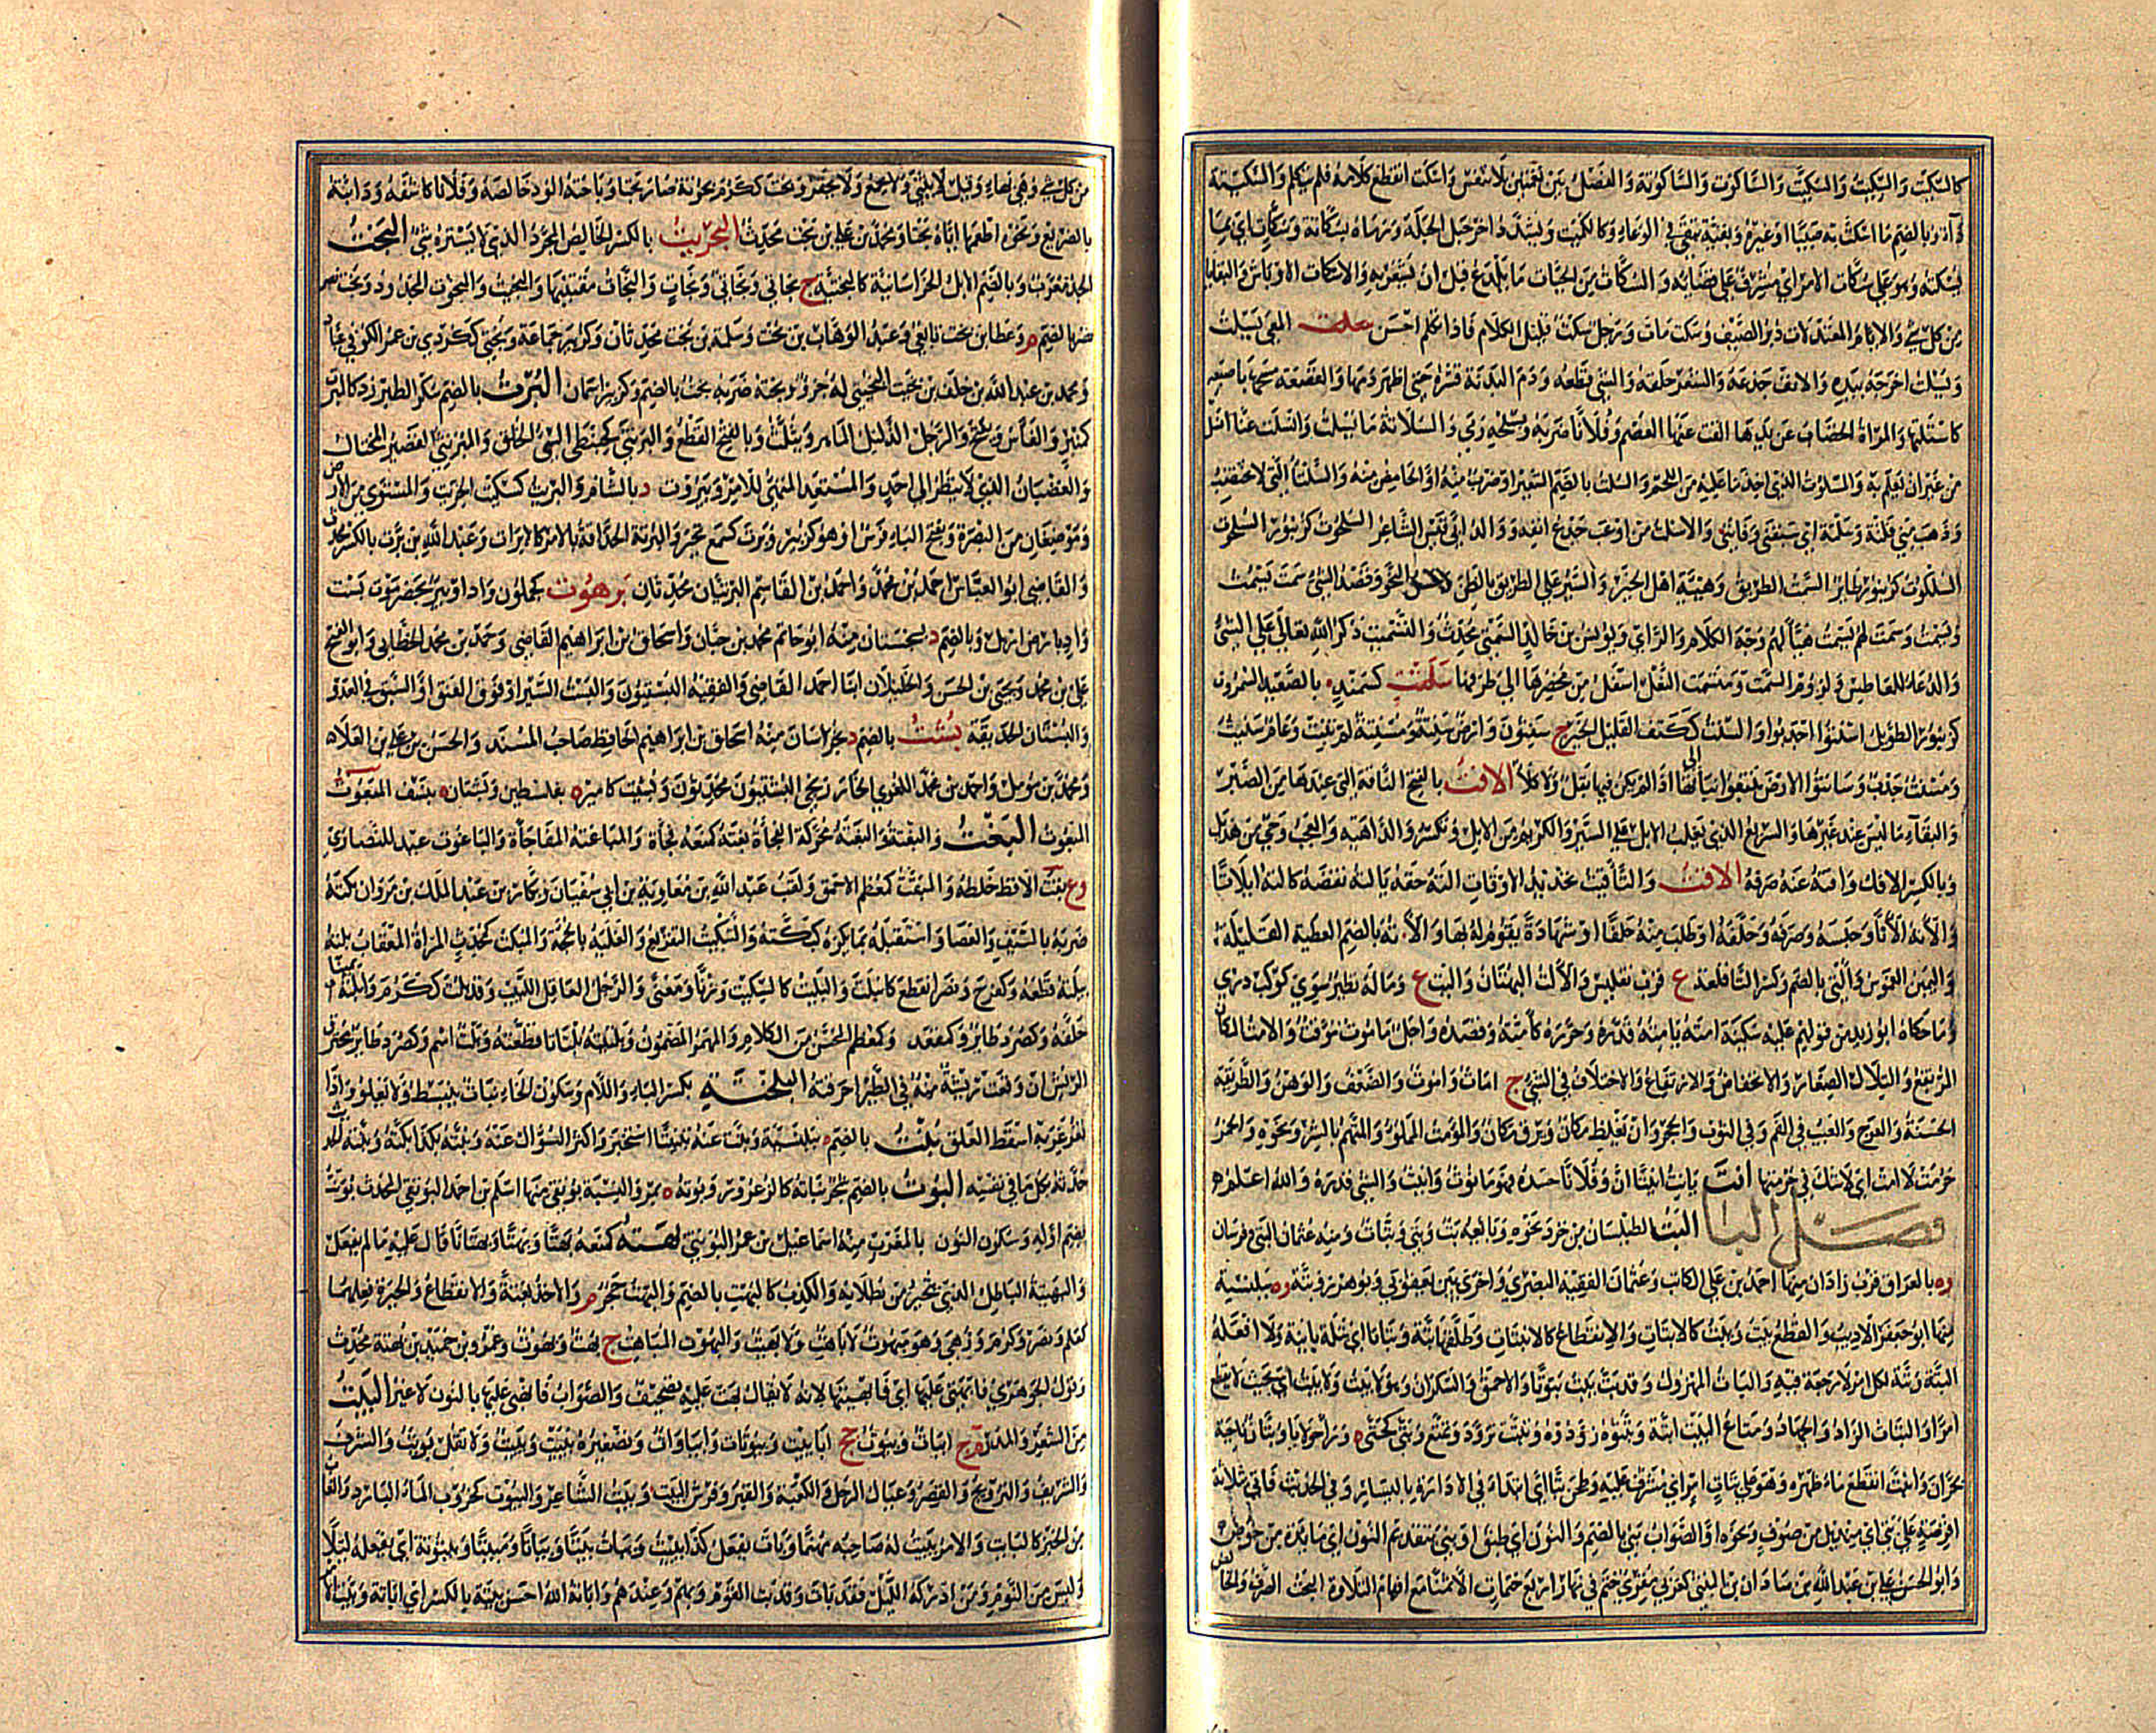 كالسكت والسكيت والسكيت والساكوت والساكوتة والفصل بين نغمتين بلا تنفس واسكت انقطع كلامه فلم يتكلم والسكتة
داء وبالضم ما اسكت به صبيا او غيره وبقية تبقى في الوعاء وكالكميت ويشدد اخر خيل الحلبة ورماه بسكاتة وسكات اي بما
يسكته وهو على سكات الامر اي مشرف على قضائه والسكات من الحيات ما يلدغ قبل ان يشعر به والاسكات الاوباش والبقايا
من كل شي والايام المعتدلات دبر الصيف وسكت مات ورجل سكت قليل الكلام فاذا تكلم احسن سلت المعى يسلت
ويسلت اخرجه بيده والانف جدعه والشعر حلقه والشي قطعه ودم البدنة قشره حتى اظهر دمها والقصعة مسحها باصبعه
كاستلتها والمراة الخضاب عن يدها القت عنها العصم وفلانا ضربه وبسلحه رمى والسلاتة ما يسلت وانسلت عنا انسل
من غير ان يعلم به والمسلوت الذي اخذ ما عليه من اللحم والسلت بالضم الشعير او ضرب منه او الحامض منه والسلتا التي لا تختضب
وذهب مني فلتة وسلتة اي سبقني وفاتني والاسلت من اوعب جدع انفه ووالد ابي قيس الشاعر السلحوت كزنبور السلحوت
السلكوت كزنبور طاير السمت الطريق وهيئة اهل الخير والسير على الطريق بالظن وقصد الشي سمت يسمت
ويسمت وسمت لهم يسمت هيا لهم وجه الكلام والراي ويونس بن خالد السمتي محدث والتسميت ذكر الله تعالى على الشي
والدعاء للعاطس ولزوم السمت ومسمت النعل اسفل من مخصرها الى طرفها كسمند بالصعيد السمروت
كزنبور الطويل اسنتوا اجدبوا والسنت ككتف القليل الخير ج سنتون وارض سنتة ومسنتة لم تنبت وعام سنيت
ومسنت جدب وسانتوا الارض تتبعوا نباتها الافت بالفتح الناقة التي عندها من الصبر
والبقاء ما ليس عند غيرها والسريع الذي يغلب الابل على السير والكريم من الابل وتكسر والداهية والعجب وحي من هذيل
وبالكسر الافك وافته عنه صرفه الاقت والتاقيت تحديد الاوقات الته حقه يالته نقصه كالته ايلاتا
والاته الاتا وحبسه وصرفه وحلفه او طلب منه حلفا او شهادة يقوم له بها والالتة بالضم العطية القليلة
واليمين الغموس والتي بالضم وكسر التا قلعة ع قرب تفليس والالت البهتان والبت ع وماله نظير سوى كوكب دري
وما حكاه ابو زيد من قولهم عليه سكينة امته يامته قدره وحزره كامته وقصده واجل ماموت موقت والامت المكان
المرتفع والتلال الصغار والانخفاض والارتفاع والاختلاف في الشي ج امات واموت والضعف والوهن والطريقة
الحسنة والعوج والعيب في الفم وفي الثوب والحجر وان تغلظ مكان وترق مكان والمؤمت المملوء والمتهم بالشر ونحوه والخمر
حرمت لا امت اي لا شك في حرمتها انت يانت انيتا ان وفلانا حسده فهو مانوت وانيت والشي قدره والله اعلم
فصل البا البت الطيلسان من خز ونحوه وبايعه بت وبتي وبتات ومنه عثمان البتي وفرسان
وه بالعراق قرب راذان منها احمد بن علي الكاتب وعثمان الفقيه البصري واخرى بين بعقوبى وبوهرز وبتة ه ببلنسية
منها ابو جعفر الاديب والقطع يبت ويبت كالابتات والانقطاع كالانبتات وطلقها بتة وبتاتا اي بتلة باينة ولا افعله
البتة وبتة لكل امر لا رجعة فيه والبات المهزول وقد بت يبت بتوتا والاحمق والسكران وهو لا يبت ولا يبت اي بحيث لا يقطع
امرا والبتات الزاد والجهاز ومتاع البيت ابتة وبتتوه زودوه وتبتت تزود وتمتع وبتى كحتى ه وراجولابا وبتان ناحية
بحران وانبت انقطع ماء ظهره وهو على بتات امر اي مشرف عليه وطحن بتا اي ابتدا في الادارة باليسار وفي الحديث فاتي بثلاثة
اقرصة على بتي اي منديل من صوف ونحوه او الصواب بني بالضم والنون اي طبق او نبي بتقديم النون اي مايدة من خوص
وابو الحسن علي بن عبد الله بن شاذان بن البتني كعربي مقرئ ختم في نهار اربع ختمات الا ثمنا مع افهام التلاوة البحت الصرف والخالص
من كل شي وهي بهاء وقيل لا يثنى ولا يجمع ولا يحقر وبحت ككرم بحوتة صار بحتا وباحته الود خالصه وفلانا كاشفه ودابته
بالضريع ونحوه اطعمها اياه بحتا ومحمد بن علي بن بحت محدث البحريت بالكسر الخالص المجرد الذي لا يستره شي البخت
الجد معرب وبالضم الابل الخراسانية كالبختية ج بخاتي وبخاتى وبخات والبخات مقتنيها والبخيت والمبخوت المجدود وبخت نصر
بالضم م وعطا بن بخت تابعي وعبد الوهاب بن بخت وسلمة بن بخت محدثان وكزبير جماعة وبختي ككردي بن عمر الكوفي عباد
ومحمد بن عبد الله بن خلف بن بخيت البخيتي له جزؤ وبخته ضربه بخت بالضم وكزبير اسمان البرت بالضم سكر الطبرزد كالمبرت
كمنبر والفاس ويفتح والرجل الدليل الماهر ويثلث وبالفتح القطع والبرنتى كحبنطى السيئ الخلق والمبرنتي القصير المختال
والغضبان الذي لا ينظر الى احد والمستعد المتهيئ للامر وبيروت د بالشام والبرت كسكيت الخريت والمستوى من الارض
وموضعان من البصرة وبفتح الباء فرس او هو كزبير وبرت كسمع تحير والبرتة الحذاقة بالامر كالابرات وعبد الله بن برت بالكسر محدث
والقاضي ابو العباس احمد بن محمد واحمد بن القاسم البرتيان محدثان برهوت كحملون واد او بئر بحضرموت بست
واد بارض اربل وبالضم د بسجستان منه ابو حاتم محمد بن حبان واسحاق بن ابراهيم القاضي وحمد بن محمد الخطابي وابو الفتح
علي بن محمد ويحيى بن الحسن والخليلان ابنا احمد القاضي والفقيه البستيون والبست السير او فوق العنق او السبق في العدو
والبستان الحديقة بشت بالضم د بخراسان منه اسحاق بن ابراهيم الحافظ صاحب المسند والحسن بن علي بن العلاء
ومحمد بن مؤمل واحمد بن محمد اللغوي الخارزنجي البشتيون محدثون وبشيت كامير ه بفلسطين وبشتان ه بنسف المبعوت
المبعوث البغت والبغتة والبغتة محركة الفجاة بغته كمنعه فجاه والمباغتة المفاجاة والباغوت عيد للنصارى
وع بقت الاقط خلطه والمبقت كمعظم الاحمق ولقب عبد الله بن معاوية بن ابي سفيان وبكار بن عبد الملك بن مروان بكته
ضربه بالسيف والعصا واستقبله بما يكره كبكته والتبكيت التقريع والغلبة بالحجة والمبكت كمحدث المراة المعقاب بلته
يبلته قطعه وكفرح ونصر انقطع كانبلت والبليت كالسكيت وزنا ومعنى والرجل العاقل اللبيب وقد بلت ككرم وابلته
حلفه وكصرد طاير وكمقعد وكمعظم المحسن من الكلام والمهر المضمون وبلته بلتاتا قطعته وبلت اسم وكصرد طاير محترق
الريش ان وقعت ريشة منه في الطير احرقته البلختة بكسر الباء واللام وسكون الخاء نبات ينبسط ولا يعلو واذا
تغرغر به اسقط العلق بنت بالضم ه ببلنسية وبنت عنه تبنيتا استخبر واكثر السؤال عنه وبنته بكذا بكته وبنته الحديث
حدثه بكل ما في نفسه البوت بالضم شجر نباته كالزعرور وبوتة ه بمرو والنسبة بوتقي منها اسلم بن احمد البوتقي المحدث بونت
بضم اوله وسكون النون بالمغرب منه اسماعيل بن عمر البونتي بهته كمنعه بهتا وبهتا وبهتانا قال عليه ما لم يفعل
والبهيتة الباطل الذي يتحير من بطلانه والكذب كالبهت بالضم والبهت حجر م والاخذ بغتة والانقطاع والحيرة فعلهما
كعلم ونصر وكرم وزهي وهو مبهوت لا باهت ولا بهيت والبهوت المباهت ج بهت وبهوت وعمرو بن حميد بن بهتة محدث
وقول الجوهري فابهتي عليها اي فابهتيها لانه لا يقال بهت عليه تصحيف والصواب فانهتي عليها بالنون لا غير البيت
من الشعر والمدر م ج ابيات وبيوت جج ابابيت وبيوتات وابياوات وتصغيره بييت وبييت ولا تقل بويت والشرف
والشريف والتزويج والقصر وعيال الرجل والكعبة والقبر وفرش البيت وبيت الشاعر والبيوت كخروف الماء البارد والغاب
من الخبز كالبايت والامر يبيت له صاحبه مهتما وبات يفعل كذا يبيت ويبات بيتا وبياتا ومبيتا وبيتوتة اي يفعله ليلا
وليس من النوم ومن ادركه الليل فقد بات وقد بت القوم وبهم وعندهم واباته الله احسن بيتة بالكسر اي اباتة وبيت الامر